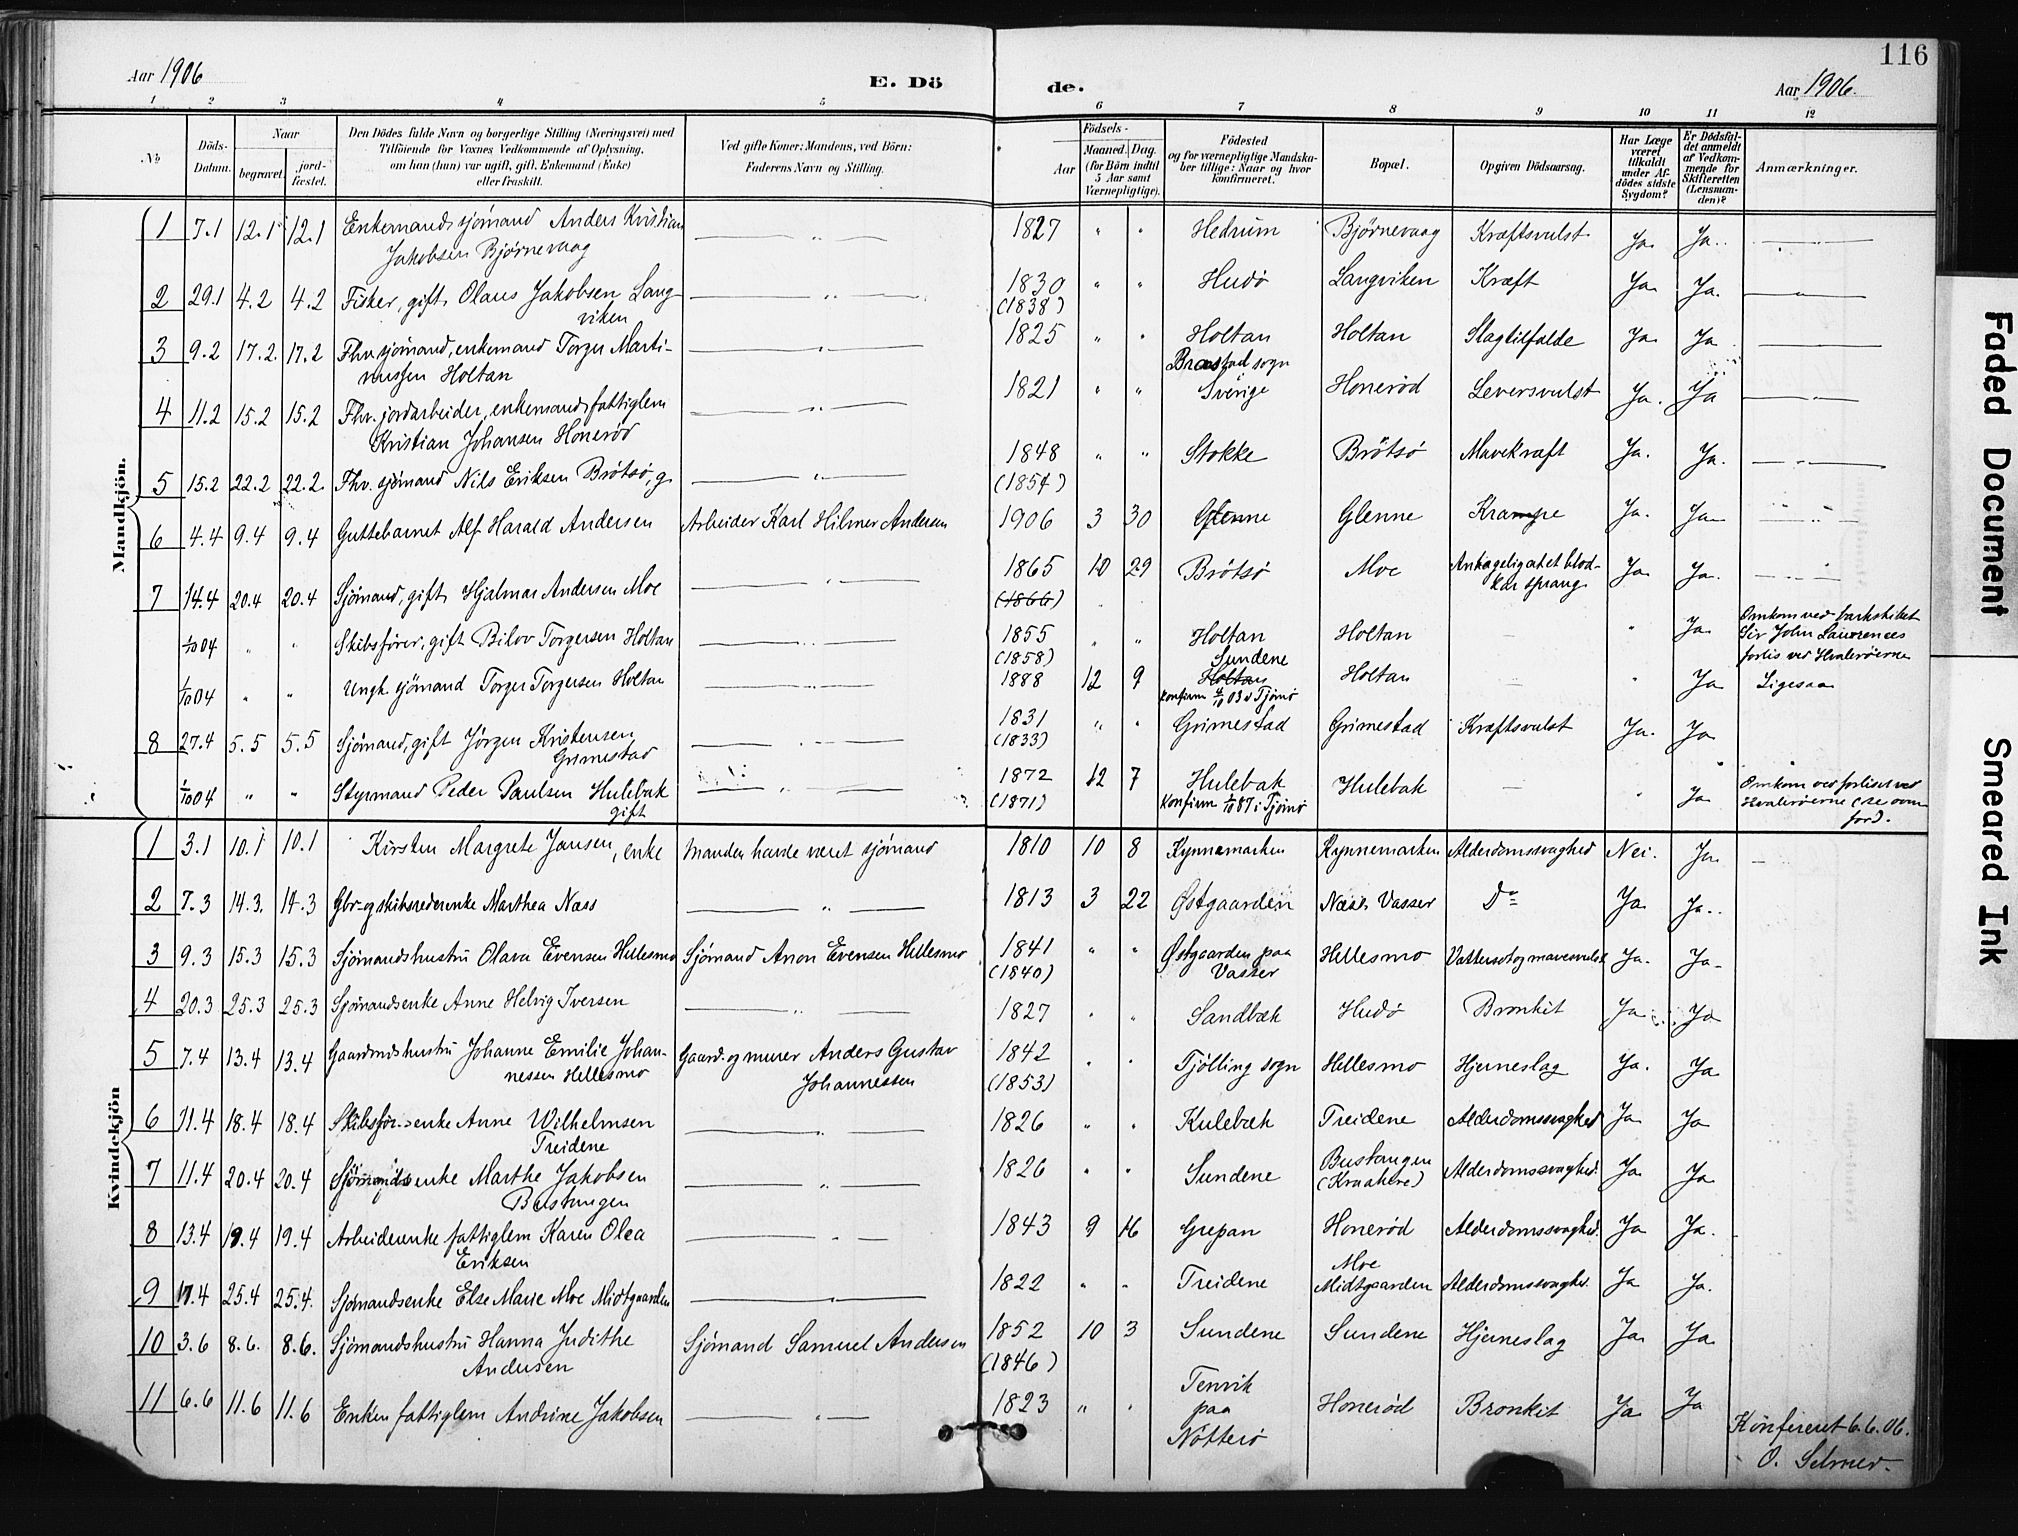 116
Aar 1906
E. Döde.
Aar 1906.
1 2 3 4 5 6 7 8 9 10 11 12
No
Döds-Datum.
Naar begravet. jord-fæstet.
Den Dödes fulde Navn og borgerlige Stilling (Næringsvei) med
Tilföiende for Voxnes Vedkommende af Oplysning,
om han (hun) var ugift, gift, Enkemand (Enke)
eller fraskilt.
Ved gifte Koner: Mandens, ved Börn:
Faderens Navn og Stilling.
Födsels-
Aar Maaned. Dag.
(for Börn indtil
5 Aar samt
Værnepligtige).
Födested
og for værnepligtige Mandska-
ber tillige: Naar og hvor
konfirmeret.
Bopæl.
Opgiven Dödsaarsag.
Har Læge
været
tilkaldt
under Af-
dödes sidste
Sygdom?
Er Dödsfal-
det anmeldt
af Vedkom-
mende for
Skifteretten
(Lensman-
den)?
Anmærkninger.
Mandkjön.
1 7.1 12.1 12.1 Enkemand sjömand Anders Kristian — " — 1827 " " Hedrum Bjørnevaag Kræftsvulst Ja. Ja. — " —
Jakobsen Bjørnevaag
2 29.1 4.2 4.2 Fisker, gift Olaus Jakobsen Lang- — " — 1830 " " Hudø Langviken Kræft Ja. Ja. — " —
viken (1838)
3 9.2 17.2. 17.2 Fhv. sjömand, enkemand Torger Marti- — " — 1825 " " Holtan Holtan Slagtilfælde Ja. Ja —
nussen Holtan
4 11.2 15.2 15.2 Fhv. jordarbeider, enkemand, fattiglem — " — 1821 " " Brastad sogn Sverige Honerød Leversvulst Ja. Ja —
Kristian Johansen Honerød
5 15.2 22.2 22.2. Fhv. sjömand Nils Eriksen Brötsö, g. — " — 1848 " " Stokke Brötsö Mavekræft Ja. Ja. — " —
(1854)
6 4.4 9.4 9.4 Guttebarnet Alf Harald Andersen Arbeider Karl Hilmer Andersen 1906 3 30 Glenne Glenne Krampe Ja. Ja — " —
7 14.4 20.4 20.4 Sjömand, gift Hjalmar Andersen Moe — " — 1865 10 29 Brötsö Moe Antageligvis et blod- Ja. Ja. — " —
(1866) kar sprang
1/10 04 " " Skibsfører, gift Bilov Torgersen Holtan — " — 1855 " " Holtan Holtan — " Ja Omkom ved barkskibet
(1858) Sir John Lawrences
forlis ved Hvalerøerne
1/10 04 " " Ungk. sjömand Torger Torgersen Holtan — " — 1888 12 9 Sundene Holtan Holtan — Ja Ligesaa
konfirm 4/10 03 i Tjømø
8 27.4 5.5 5.5 Sjömand, gift Jörgen Kristensen — " — 1831 " " Grimestad Grimestad Kræftsvulst Ja. Ja "
Grimestad (1833)
1/10 04 " " Styrmand Peder Paulsen Hulebak — " — 1872 12 7 Hulebak Hulebak — " Ja Omkom ved forliset ved
gift (1871) Konfirm 1/10 87 i Tjømø Hvalerøerne (se oven
for).
Kvindekjön
1 3.1 10.1 10.1 Kirsten Margrete Jansen, enke Manden havde været sjömand 1810 10 8 Kynnemarken Kynnemarken Alderdomssvaghed Nei. Ja. —
2 7.3 14.3. 14.3 Gbr.- og skibsrederenke Marthea Næss — " — 1813 3 22 Østgaarden Næss, Vasser Do Ja Ja.
3 9.3 15.3 15.3 Sjömandshustru Olava Evensen Hellesmo Sjömand Anon Evensen Hellesmo 1841 " " Østgaarden paa Hellesmo Vattersot og mavesvulst Ja. Ja.
(1840) Vasser
4 20.3 25.3 25.3 Sjömandsenke Anne Helvig Iversen — " — 1827 " " Sandbæk Hudø Bronkit Ja Ja
5 7.4 13.4 13.4 Gaardmdshustru Johanne Emilie Johan- Gaard- og murer Anders Gustav 1842 " " Tjölling sogn Hellesmo Hjerneslag Ja. Ja
nessen Hellesmo Johannessen (1853)
6 11.4 18.4 18.4 Skibsför.enke Anne Wilhelmsen — " — 1826 " " Kulebæk Treidene Alderdomssvaghed Ja Ja
Treidene
7 11.4 20.4 20.4 Sjömandsenke Marthe Jakobsen — " — 1826 " " Sundene Bustangen Alderdomssvaghed. Ja Ja
Bustangen (Kraakere)
8 13.4 19.4 19.4 Arbeiderenke fattiglem Karen Olea — " — 1843 9 16 Grepan Honerød Alderdomssvaghed. Ja Ja.
Eriksen
9 17.4 25.4 25.4. Sjömandsenke Else Marie Moe Midtgaarden — " — 1822 " " Treidene Moe Midtgaarden Alderdomssvaghed. Ja Ja.
10 3.6 8.6. 8.6. Sjömandshustru Hanna Judithe Sjömand Samuel Andersen 1852 10 3 Sundene Sundene Hjerneslag Ja. Ja
Andersen (1846)
11 6.6 11.6 11.6 Enken fattiglem Andrine Jakobsen — " — 1823 " " Tenvik paa Nötterö Honerød Bronkit Ja Ja
Konfereret 6.6.06.
O. Selmer.
Faded Document
Smeared Ink